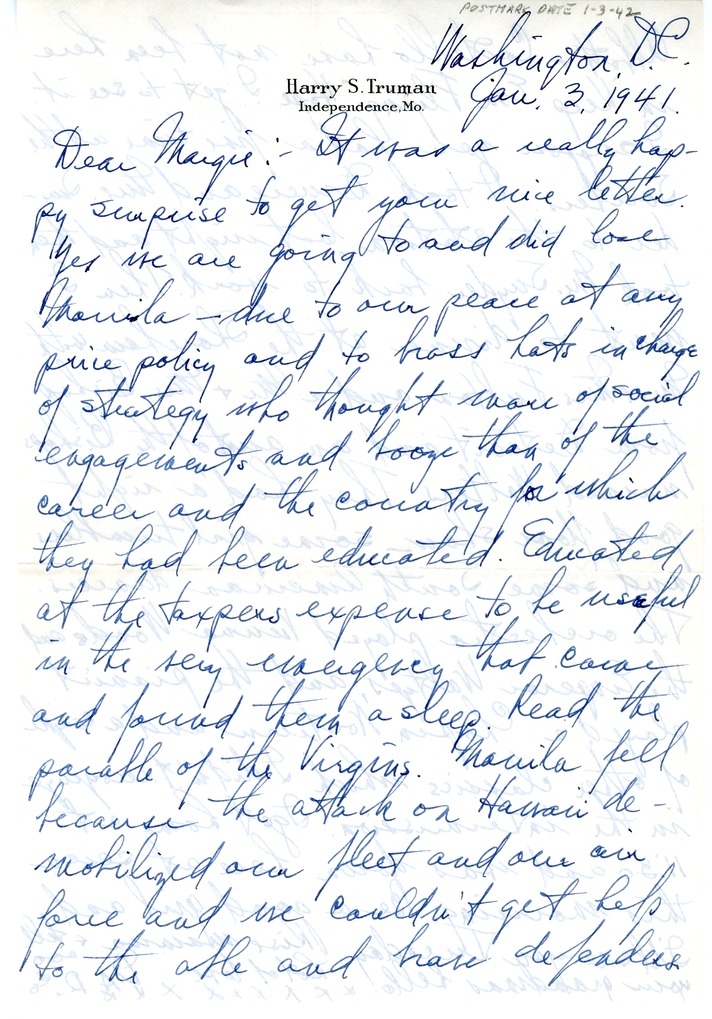 POSTMARK DATE 1-3-42
Washington, D.C.
Harry S. Truman
Independence, Mo.
Jan. 3, 1941.
Dear Margie:- It was a really hap-
py surprise to get your nice letter.
Yes we are going to and did lose
Manila - due to our peace at any
price policy and to brass hats in charge
of strategy who thought more of social
engagements and booze than of the
career and the country for which
they had been educated. Educated
at the taxpers expense to be useful
in the very emergency that came
and found them asleep. Read the
parable of the Virgins. Manila fell
because the attack on Hawaii de-
mobilized our fleet and our air
force and we couldn't get help
to the able and brave defenders